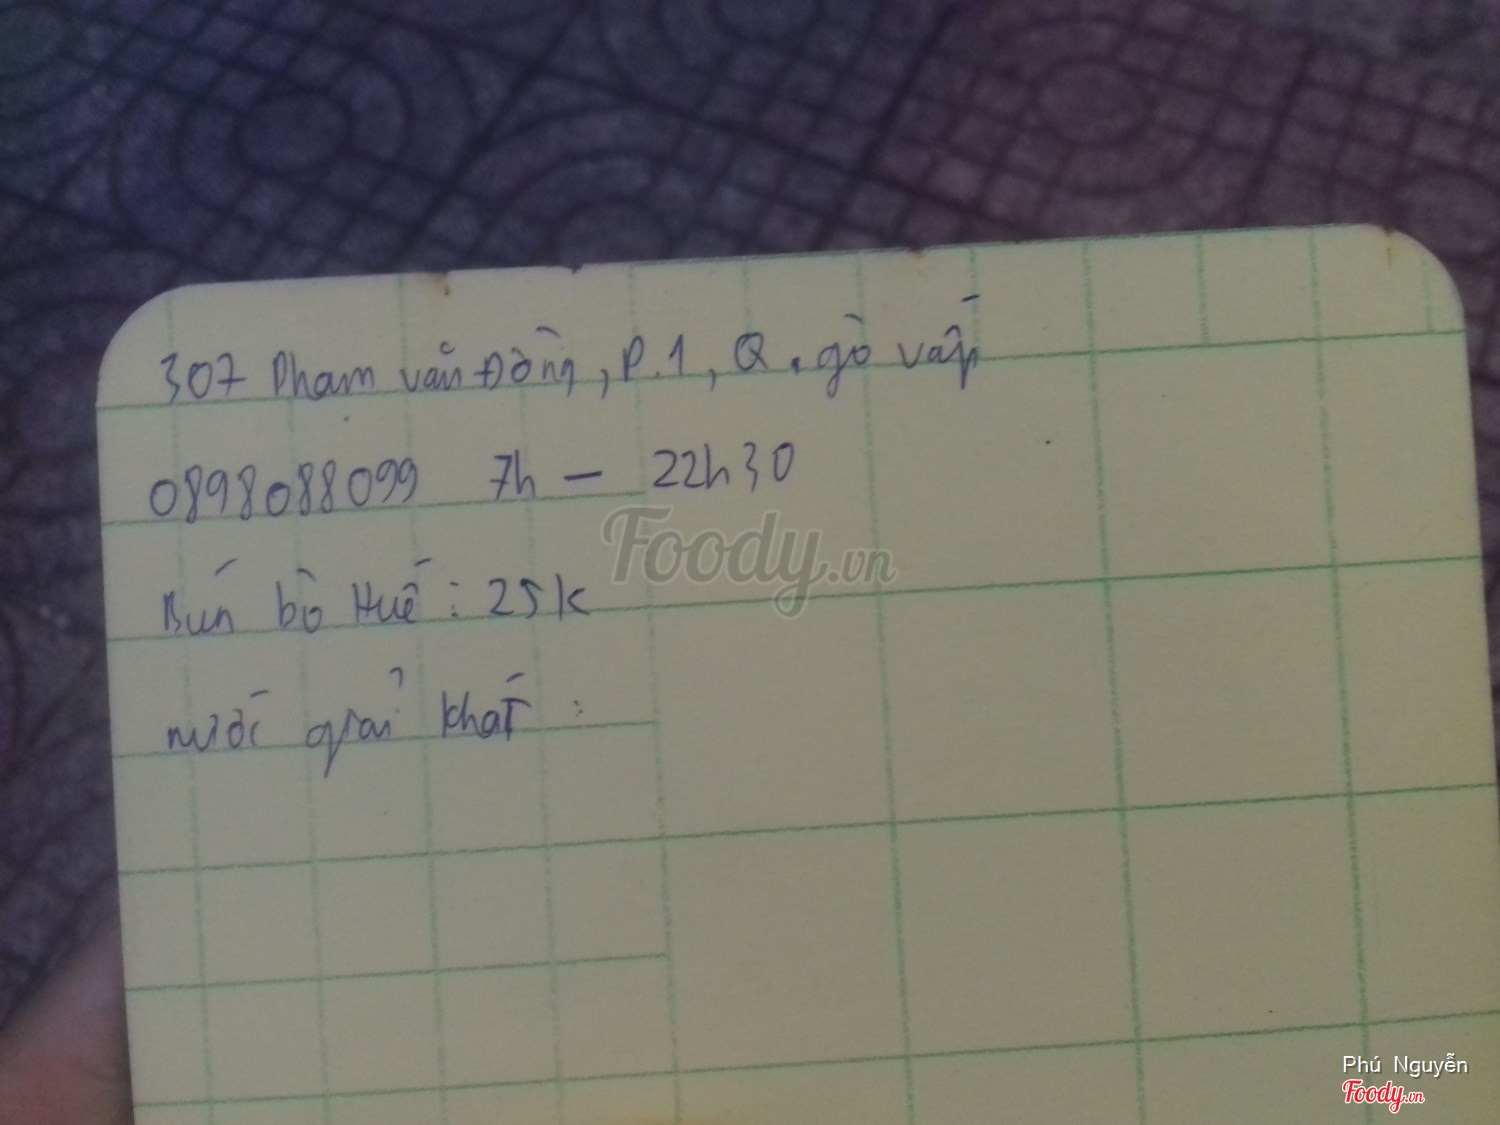 307 Phạm văn Đồng, P.1, Q. gò vấp
0898088099 7h - 22h30
Bún bò Huế : 25k
nước giải khát :
Foody.vn
Phú Nguyễn
Foody.vn